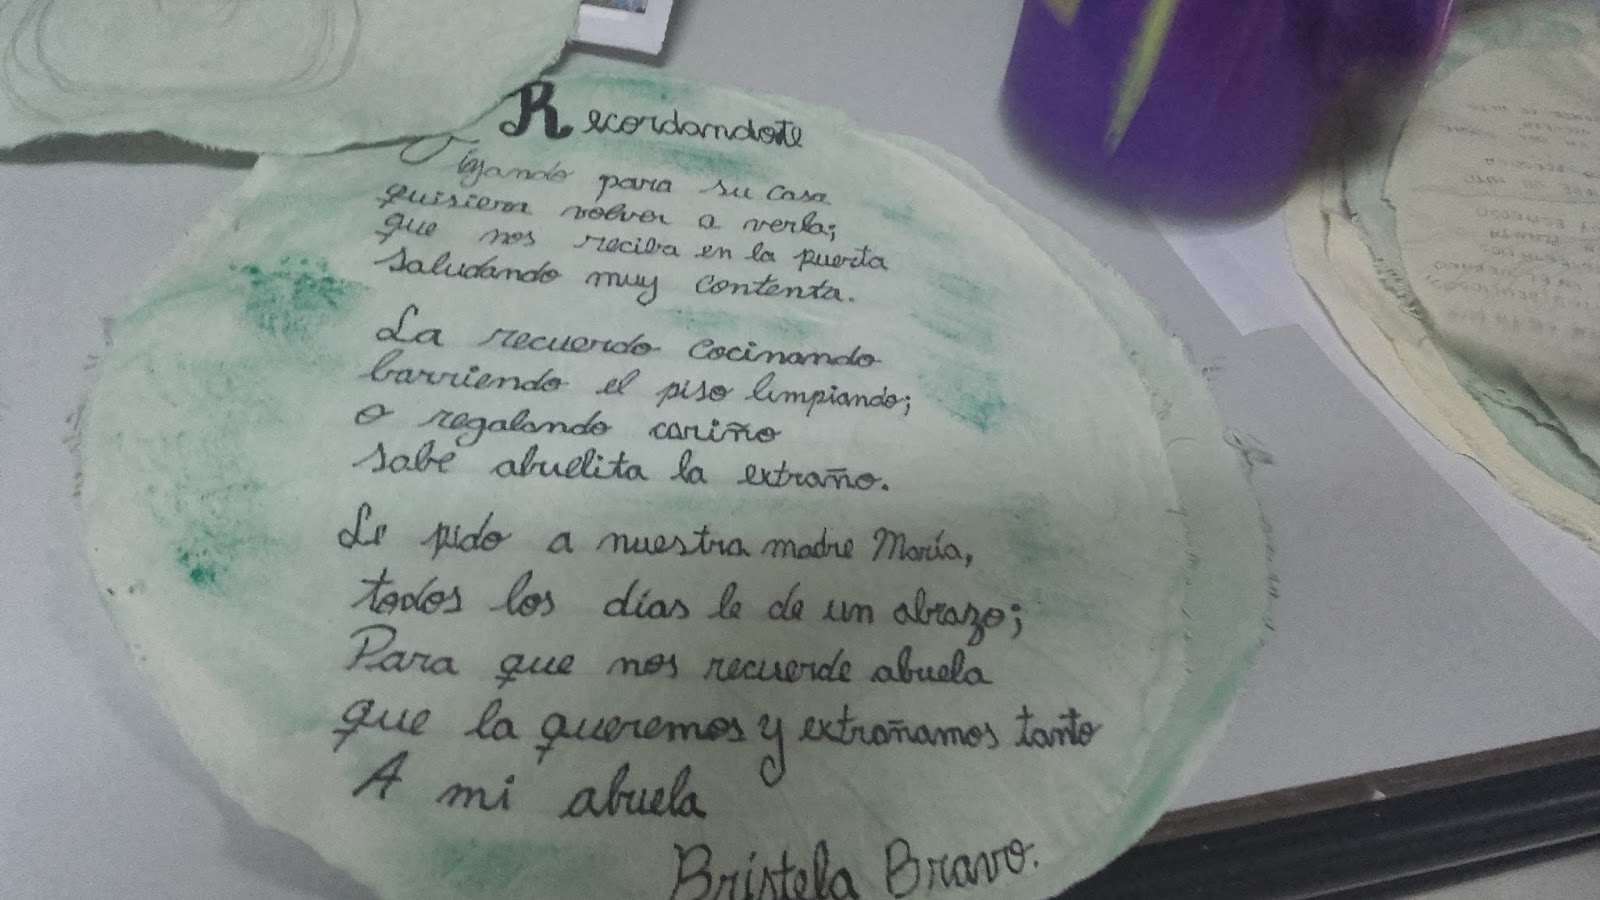 Recordandote
Viajando para su casa
quisiera volver a verla;
que nos reciba en la puerta
saludando muy contenta.
La recuerdo cocinando
barriendo el piso limpiando;
o regalando cariño
sabe abuelita la extraño.
Le pido a nuestra madre María,
todos los días le de un abrazo;
Para que nos recuerde abuela
que la queremos y extrañamos tanto
A mi abuela
Bristela Bravo.